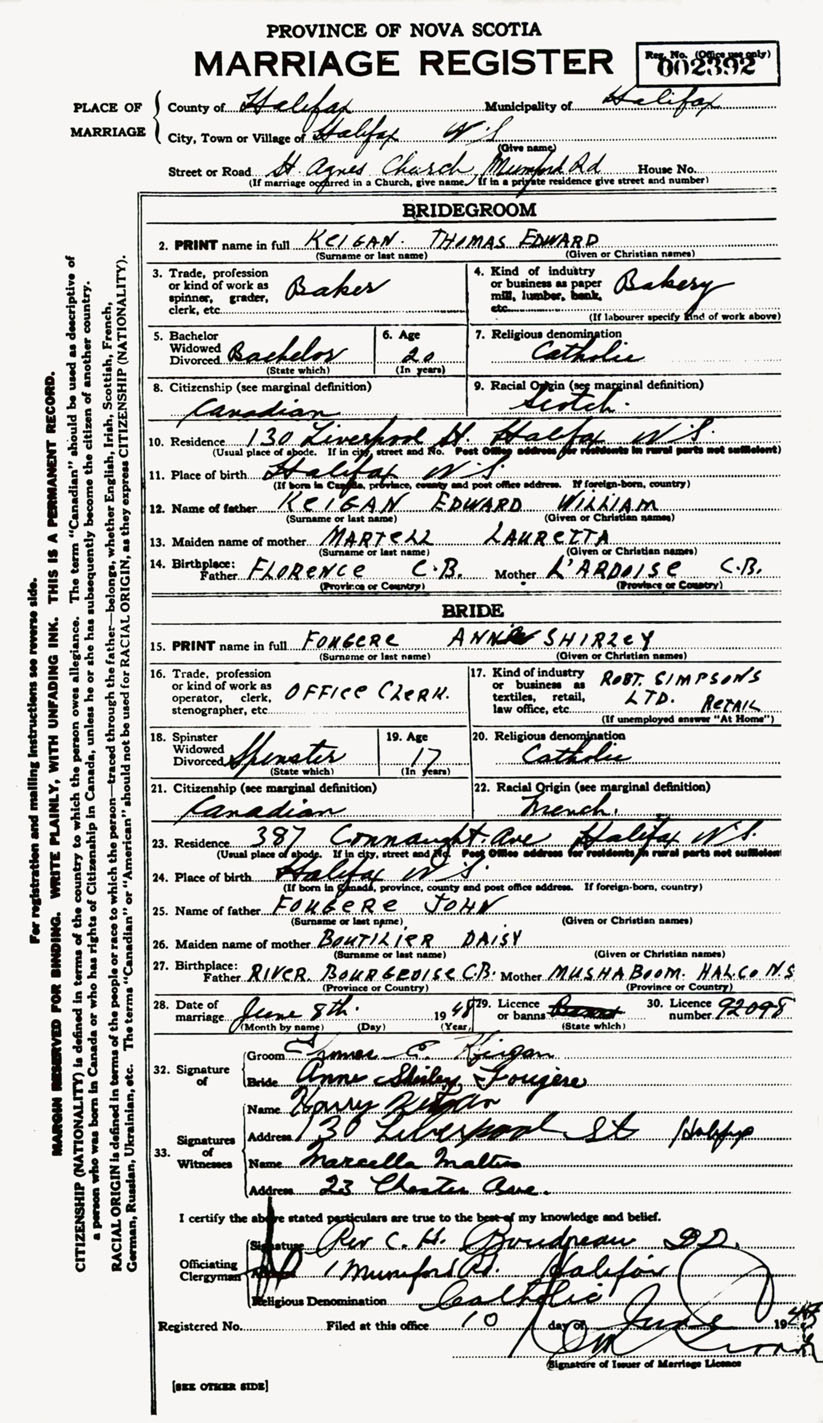 PROVINCE OF NOVA SCOTIA
MARRIAGE REGISTER
Reg. No. (Office use only)
002392
PLACE OF MARRIAGE
County of Halifax Municipality of Halifax
City, Town or Village of Halifax N S
(Give name)
Street or Road St. Agnes Church, Mumford Rd House No.
(If marriage occurred in a Church, give name. If in a private residence give street and number)
BRIDEGROOM
2. PRINT name in full KEIGAN. THOMAS EDWARD
(Surname or last name) (Given or Christian names)
3. Trade, profession or kind of work as spinner, grader, clerk, etc. Baker
4. Kind of industry or business as paper mill, lumber, bank, etc. Bakery
(If labourer specify kind of work above)
5. Bachelor Widowed Divorced Bachelor
(State which)
6. Age 20
(In years)
7. Religious denomination
Catholic
8. Citizenship (see marginal definition)
Canadian
9. Racial Origin (see marginal definition)
Scotch.
10. Residence 130 Liverpool St. Halifax N.S.
(Usual place of abode. If in city, street and No. Post Office address for residents in rural parts not sufficient)
11. Place of birth Halifax N S
(If born in Canada, province, county and post office address. If foreign-born, country)
12. Name of father KEIGAN EDWARD WILLIAM
(Surname or last name) (Given or Christian names)
13. Maiden name of mother MARTELL LAURETTA
(Surname or last name) (Given or Christian names)
14. Birthplace: Father FLORENCE C.B. Mother L'ARDOISE C.B.
(Province or Country) (Province or Country)
BRIDE
15. PRINT name in full FOUGERE ANNE SHIRLEY
(Surname or last name) (Given or Christian names)
16. Trade, profession or kind of work as operator, clerk, stenographer, etc. OFFICE CLERK.
17. Kind of industry or business as textiles, retail, law office, etc. ROBT. SIMPSONS LTD. RETAIL
(If unemployed answer "At Home")
18. Spinster Widowed Divorced Spinster
(State which)
19. Age 17
(In years)
20. Religious denomination
Catholic
21. Citizenship (see marginal definition)
Canadian
22. Racial Origin (see marginal definition)
French.
23. Residence 387 Connaught Ave Halifax N.S.
(Usual place of abode. If in city, street and No. Post Office address for residents in rural parts not sufficient
24. Place of birth Halifax N S.
(If born in Canada, province, county and post office address. If foreign-born, country)
25. Name of father FOUGERE JOHN
(Surname or last name) (Given or Christian names)
26. Maiden name of mother BOUTILIER DAISY
(Surname or last name) (Given or Christian names)
27. Birthplace: Father RIVER BOURGEOISE C.B. Mother MUSHABOOM. HALCO N.S
(Province or Country) (Province or Country)
28. Date of marriage June 8th. 1948
(Month by name) (Day) (Year)
29. Licence or banns Banns
(State which)
30. Licence number 92098
32. Signature of
Groom Thomas E. Keigan
Bride Anne Shirley Fougère
33. Signatures of Witnesses
Name Harry
Address 130 Liverpool St Halifax
Name Marcella
Address 23 Chester Ave.
I certify the above stated particulars are true to the best of my knowledge and belief.
Officiating Clergyman
Signature Rev C. H. Boudreau D.D.
1 Mumford Rd. Halifax
Religious Denomination Catholic
Registered No. Filed at this office 10 day of June 1948
Signature of Issuer of Marriage Licence
[SEE OTHER SIDE]
For registration and mailing instructions see reverse side.
MARGIN RESERVED FOR BINDING. WRITE PLAINLY, WITH UNFADING INK. THIS IS A PERMANENT RECORD.
CITIZENSHIP (NATIONALITY) is defined in terms of the country to which the person owes allegiance. The term "Canadian" should be used as descriptive of
a person who was born in Canada or who has rights of Citizenship in Canada, unless he or she has subsequently become the citizen of another country.
RACIAL ORIGIN is defined in terms of the people or race to which the person—traced through the father—belongs, whether English, Irish, Scottish, French,
German, Russian, Ukrainian, etc. The terms "Canadian" or "American" should not be used for RACIAL ORIGIN, as they express CITIZENSHIP (NATIONALITY).